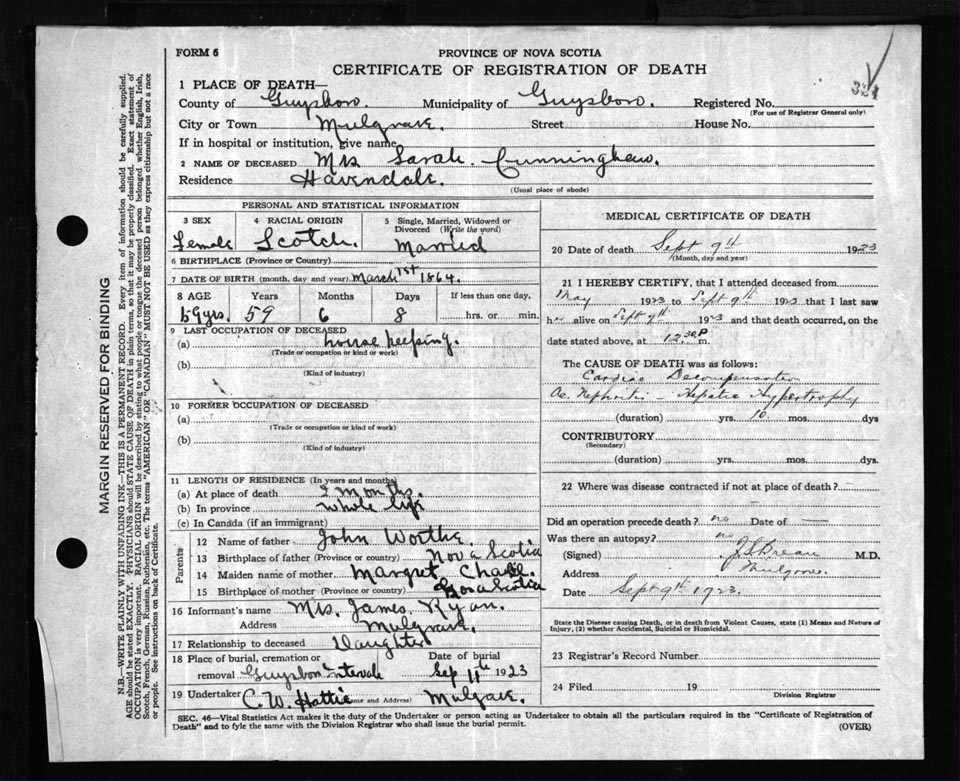 FORM 6
PROVINCE OF NOVA SCOTIA
CERTIFICATE OF REGISTRATION OF DEATH
321
1 PLACE OF DEATH—
County of Guysboro. Municipality of Guysboro. Registered No.
(For use of Registrar General only)
City or Town Mulgrave. Street House No.
If in hospital or institution, give name
2 NAME OF DECEASED Mrs Sarah Cunningham.
Residence Havendale.
(Usual place of abode)
PERSONAL AND STATISTICAL INFORMATION
3 SEX 4 RACIAL ORIGIN 5 Single, Married, Widowed or Divorced (Write the word)
Female Scotch. Married
6 BIRTHPLACE (Province or Country)
7 DATE OF BIRTH (month, day and year) March 1st 1864.
8 AGE Years Months Days If less than one day,
59yrs. 59 6 8 hrs. or min.
9 LAST OCCUPATION OF DECEASED
(a) house keeping.
(Trade or occupation or kind or work)
(b)
(Kind of industry)
10 FORMER OCCUPATION OF DECEASED
(a)
(Trade or occupation or kind of work)
(b)
(Kind of industry)
11 LENGTH OF RESIDENCE (In years and months)
(a) At place of death months.
(b) In province whole life
(c) In Canada (if an immigrant)
Parents
12 Name of father John Worthe.
13 Birthplace of father (Province or country) Nova Scotia
14 Maiden name of mother Margret
15 Birthplace of mother (Province or country) Nova Scotia
16 Informant's name Mrs. James Ryan.
Address Mulgrave.
17 Relationship to deceased Daughter
18 Place of burial, cremation or removal Guysboro Intervale Date of burial Sep 11th 1923
19 Undertaker C. W. Hattie (Name and Address) Mulgrave.
MEDICAL CERTIFICATE OF DEATH
20 Date of death Sept 9th 1923
(Month, day and year)
21 I HEREBY CERTIFY, that I attended deceased from
May 1923 to Sept 9th 1923 that I last saw
her alive on Sept 9th 1923 and that death occurred, on the
date stated above, at 12.30 P m.
The CAUSE OF DEATH was as follows:
Cardiac Decompensation
Ac. Nephritis - Hepatic Hypertrophy
(duration) yrs. 10 mos. dys
CONTRIBUTORY
(Secondary)
(duration) yrs. mos. dys.
22 Where was disease contracted if not at place of death?
Did an operation precede death? no Date of —
Was there an autopsy? no
(Signed) M.D.
Address Mulgrave.
Date Sept 9th 1923.
State the Disease causing Death, or in death from Violent Causes, state (1) Means and Nature of
Injury, (2) whether Accidental, Suicidal or Homicidal.
23 Registrar's Record Number
24 Filed 19
Division Registrar
SEC. 46—Vital Statistics Act makes it the duty of the Undertaker or person acting as Undertaker to obtain all the particulars required in the "Certificate of Registration of
Death" and to fyle the same with the Division Registrar who shall issue the burial permit.
(OVER)
MARGIN RESERVED FOR BINDING
N.B.—WRITE PLAINLY WITH UNFADING INK—THIS IS A PERMANENT RECORD. Every item of information should be carefully supplied.
AGE should be stated EXACTLY. PHYSICIANS should STATE CAUSE OF DEATH in plain terms, so that it may be properly classified. Exact statement of
OCCUPATION is very important. RACIAL ORIGIN will be described by stating to what people or tongue the deceased person belonged, whether English, Irish,
Scotch, French, German, Russian, Ruthenian, etc. The terms "AMERICAN" OR "CANADIAN" MUST NOT BE USED as they express citizenship but not a race
or people. See instructions on back of Certificate.